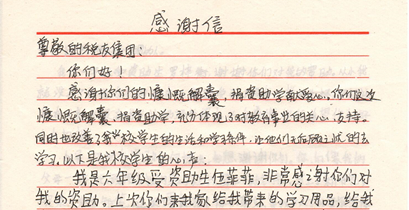 感谢信
尊敬的税友集团:
你们好!
感谢你们的慷慨解囊,捐资助学献爱心,你们这次
慷慨解囊,捐资助学,充分体现了对教育事业的关心、支持。
同时也改善了我校学生的生活和学习条件,让他们无后顾之忧的去
学习,以下是我校学生的心声:
我是六年级受资助生伍菲菲,非常感谢你们对
我的资助。上次你们来我家给我带来的学习用品,给我